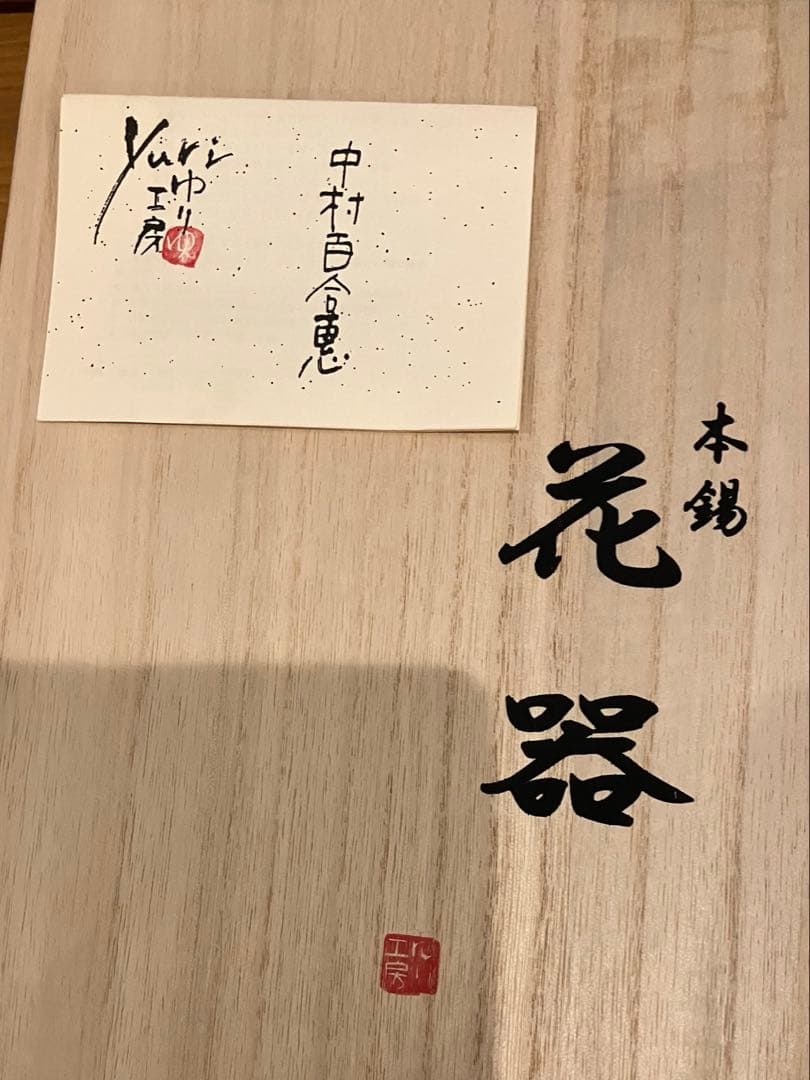 Yuri
ゆり
工房
中村百合恵
本錫
花器
ゆり
工房